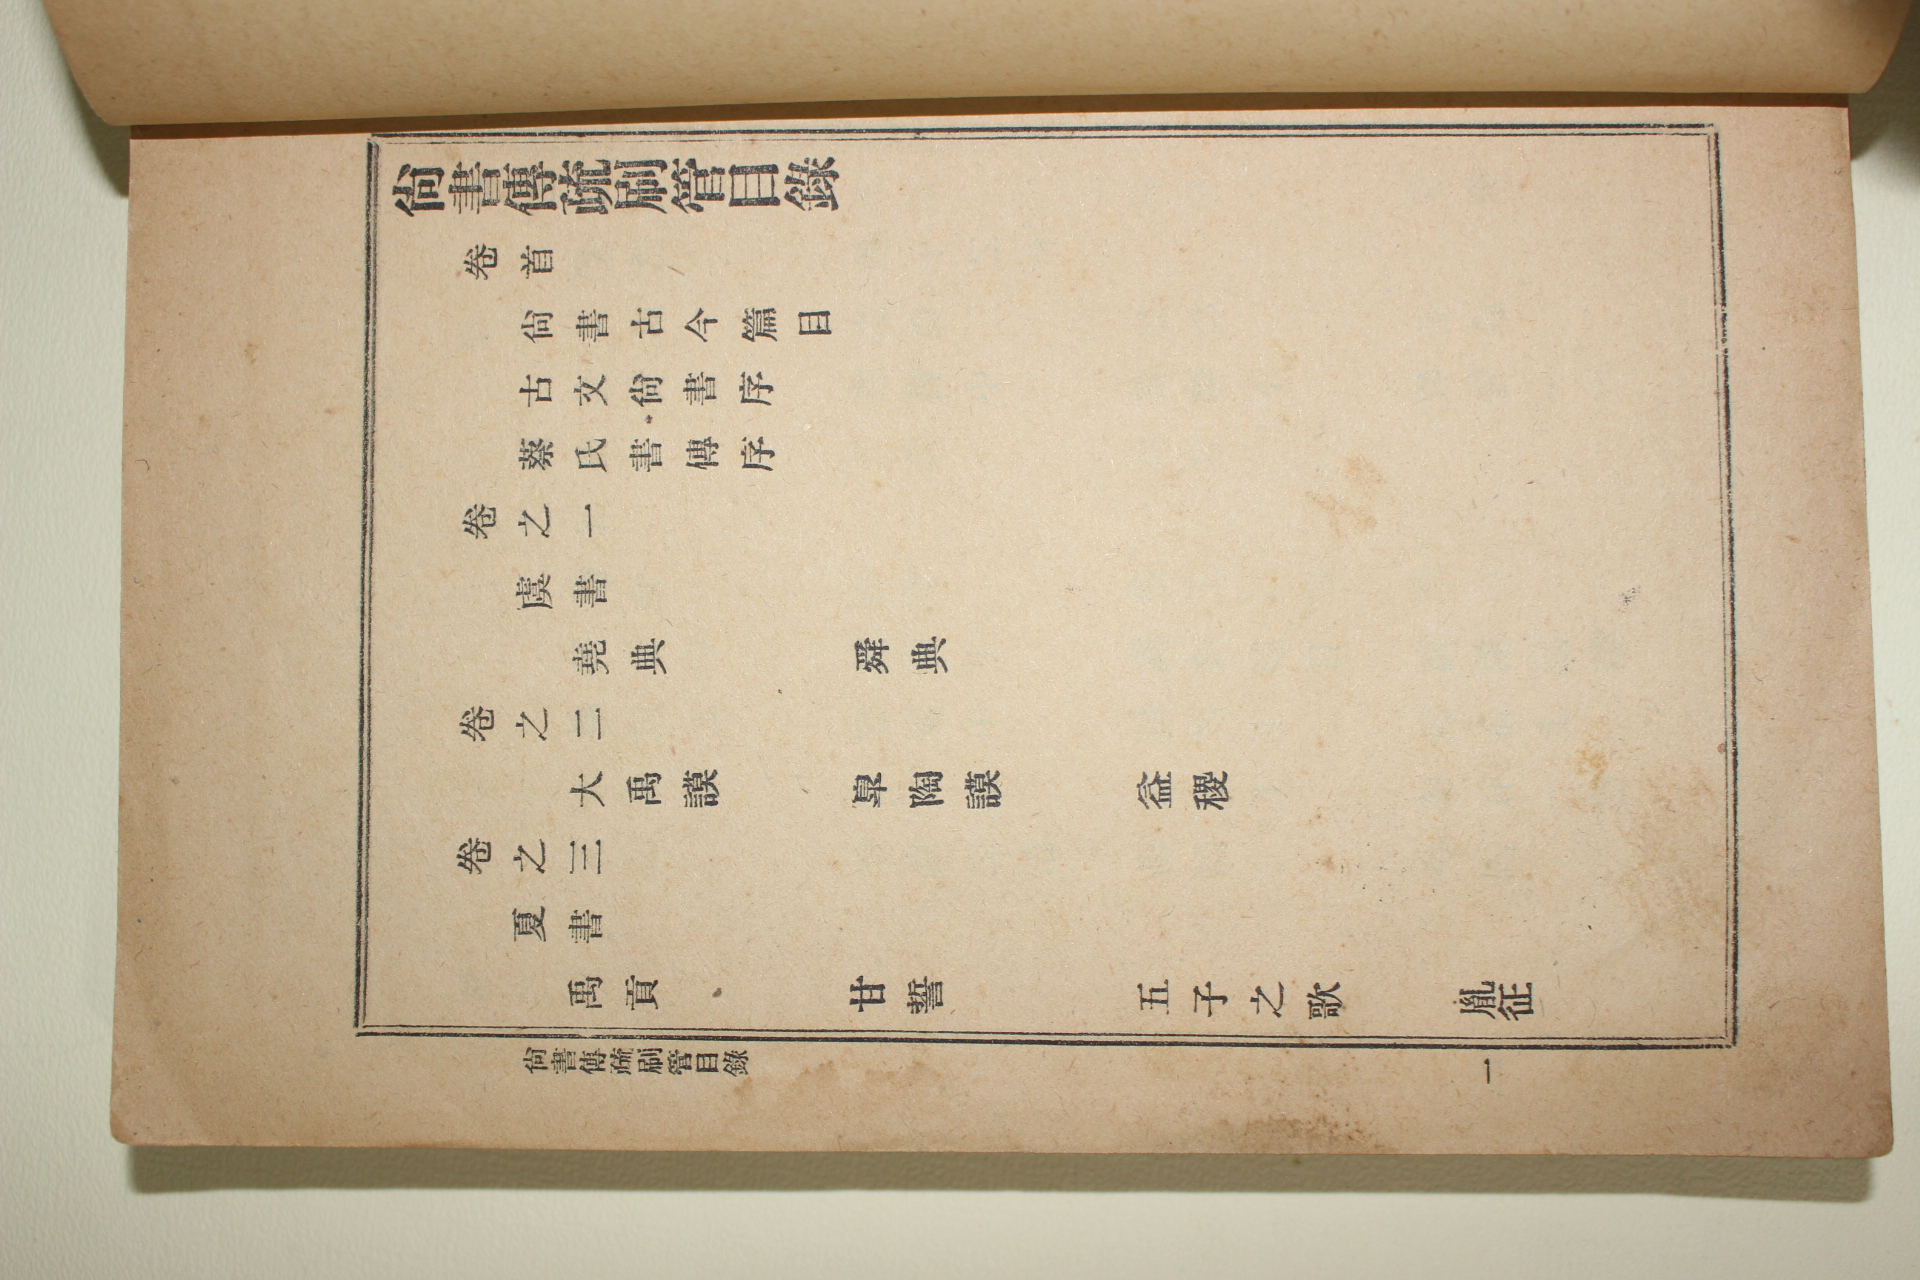 尙書傳疏刷管目錄
卷首
尙書古今篇目
古文尙書序
蔡氏書傳序
卷之一
虞書
堯典 舜典
卷之二
大禹謨 皐陶謨 益稷
卷之三
夏書
禹貢 甘誓 五子之歌 胤征
尙書傳疏刷管目錄 一